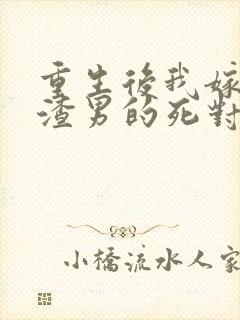 重生後我嫁
渣男的死對
小橋流水人家